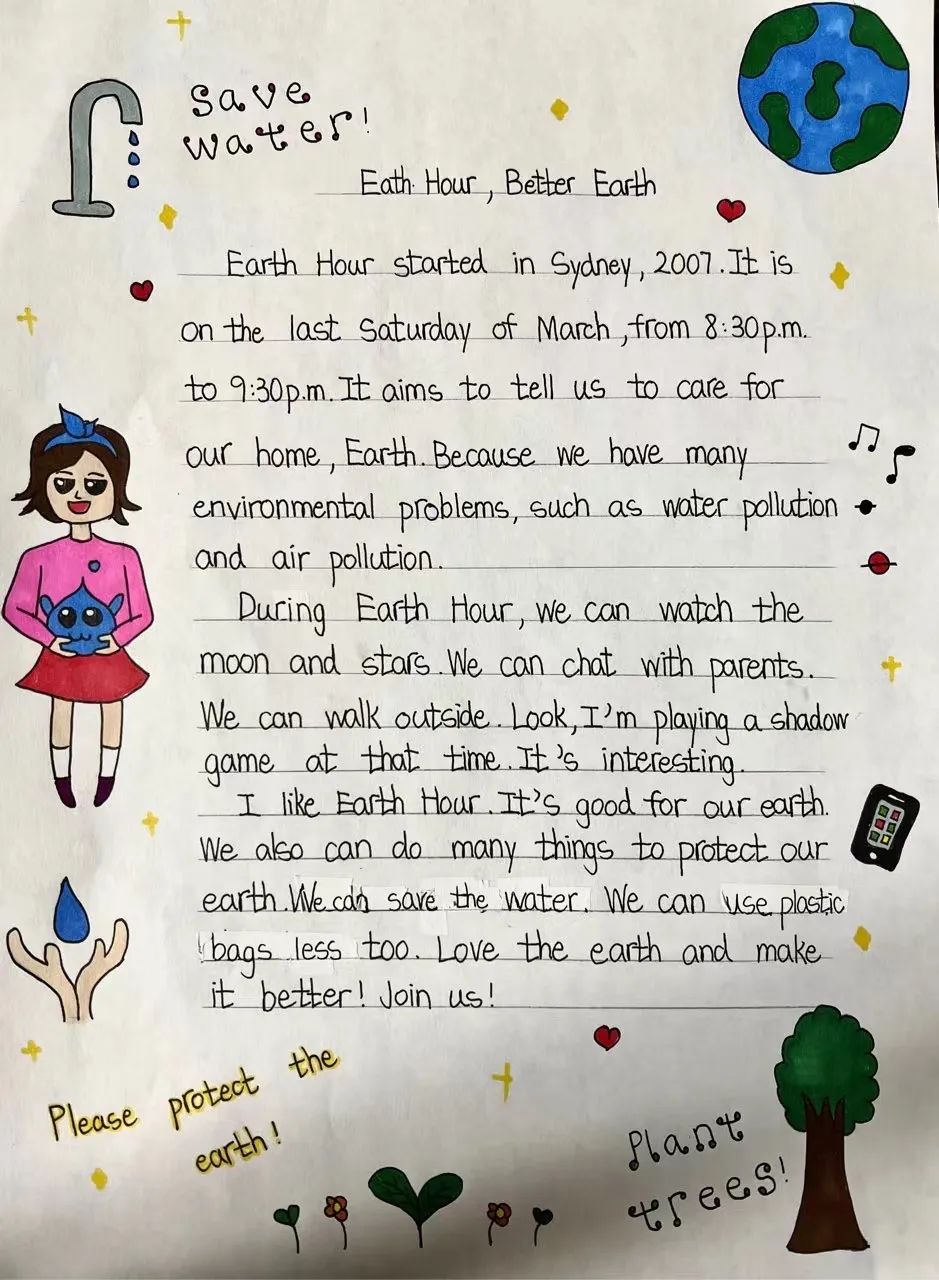 Save
water!
Eath Hour, Better Earth
Earth Hour started in Sydney, 2007. It is
on the last Saturday of March, from 8:30p.m.
to 9:30p.m. It aims to tell us to care for
our home, Earth. Because we have many
environmental problems, such as water pollution
and air pollution.
During Earth Hour, we can watch the
moon and stars. We can chat with parents.
We can walk outside. Look, I'm playing a shadow
game at that time. It's interesting.
I like Earth Hour. It's good for our earth.
We also can do many things to protect our
earth. We can save the water. We can use plastic
bags less too. Love the earth and make
it better! Join us!
Please protect the
earth!
Plant
trees!